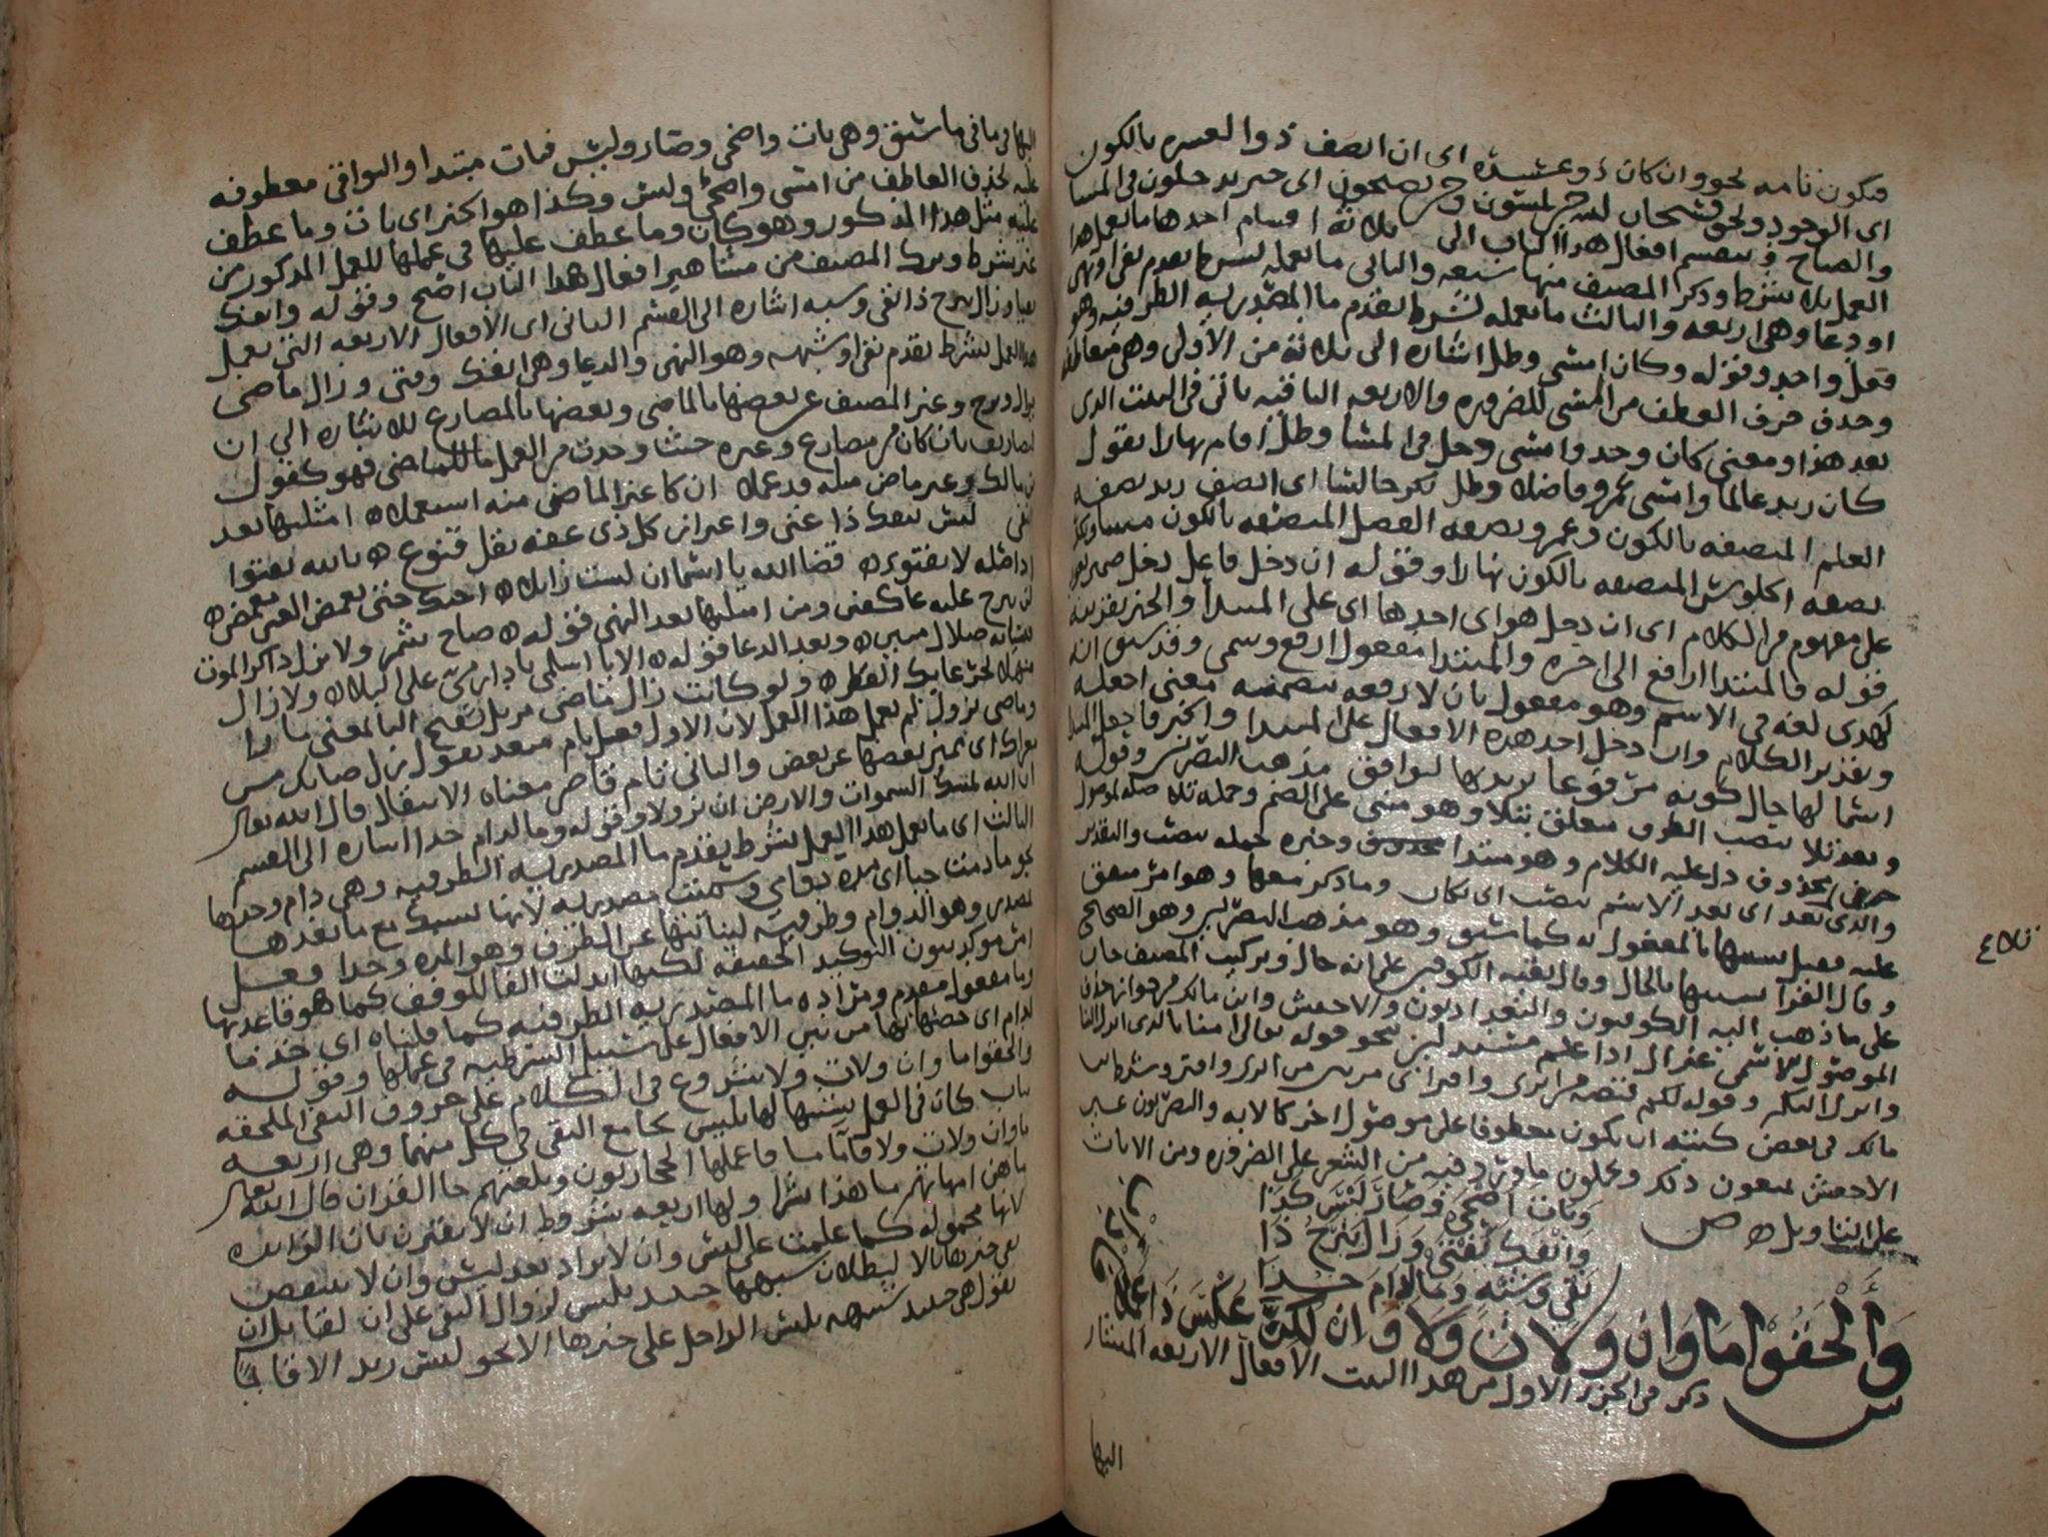 فتكون تامه نحو وان كان ذو عسره اى ان اتصف ذوا العسره بالكون
اى الوجود ونحو فسبحان الله حين تمسون وحين تصبحون اى حين تدخلون فى المسا
والصباح وينقسم افعال هذا الباب الى ثلاثة اقسام احدها ما يعمل هذا
العمل بلا شرط وذكر المصنف منها سبعه والثانى ما يعمله بشرط تقدم نفى او نهى
او دعا وهى اربعه والثالث ما يعمله بشرط تقدم ما المصدريه الظرفيه وهو
فعل واحد وقوله وكان امسى وظل اشاره الى ثلاثة من الأولى وهى متعاطفه
وحذف حرف العطف من امسى للضروره والاربعه الباقيه تاتى فى البيت الذى
بعد هذا ومعنى كان وجد وامسى دخل فى المسا وظل اقام نهارا تقول
كان زيد عالما وامسى عمرو فاضلا وظل بكر جالسا اى اتصف زيد بصفه
العلم المتصفه بالكون وعمرو بصفه الفضل المتصفه بالكون مسا وبكر
بصفه الجلوس المتصفه بالكون نهارا وقوله ان دخل فاعل دخل ضمير يعود
على مفهوم من الكلام اى ان دخل هو اى احدها اى على المبتدأ والخبر بقرينه
قوله فالمبتدا ارفع الى اخره والمبتدا مفعول ارفع وسمى وقد سبق انه
كهدى لغه فى الاسم وهو مفعول ثان لارفعه بتضمنه معنى اجعله
وتقدير الكلام وان دخل احد هذه الافعال على المبتدا والخبر فاجعل المبتدا
اسما لها حال كونه مرفوعا بها ليوافق مذهب البصريين وقوله
وبعد تلا بنصب الظرف متعلق بتلا وهو مبنى على الضم وجمله تلا صله لموصول
حرفى محذوف دل عليه الكلام وهو مبتدا وخبره جمله نصب والتقدير
والذى بعد اى بعد الاسم نصب اى بكان وما ذكر معها وهو امر متفق
عليه فقيل نصبها بالمفعوليه كما سبق وهو مذهب البصريين وهو الصحيح
وقال الفرا نصبها بالحال وقال بقيه الكوفيين على انه حال وتركيب المصنف جار
على ما ذهب اليه الكوفيون والبغداديون والاخفش وابن مالك من جواز حذف
الموصول الاسمى غير ال اذا علم مستدلين بنحو قوله تعالى امنا بالذى انزل الينا
وانزل اليكم
مالك فى بعض كتبه ان يكون معطوفا على موصول اخر كالايه والبصريون غير
الاخفش يمنعون ذلك ويحملون ما ورد فيه من الشعر على الضروره ومن الايات
على التاويل ص
وَبَاتَ اَضْحَى وَصَارَ لَيْسَ كَذَا
وَانْفَكَّ يَفْتَى وَزَالَ يَبْرَحُ ذَا
نَفْى وَشِبْه وَبِمَا لِدَامَ خُذَا
وَأَلْحَقُوْا مَا وَان وَلاتَ وَلا وَان لكِنَّ عكْس ذا عملا
ش ذكر فى الجزء الاول من هذا البيت الافعال الاربعه المشار
اليها
تلا ع
اليها فيما سبق وهى بات واضحى وصار وليس فبات مبتدا والبواقى معطوفه
عليه بحذف العاطف من امسى واضحى وليس وكذا هو الخبر اى بات وما عطف
عليه مثل هذا المذكور وهو كان وما عطف عليها فى عملها للعمل المذكور من
غير شرط وترك المصنف من مشاهير افعال هذا الباب اصبح وقوله وانفك
يفتا وزال يبرح ذا نفى وشبه اشاره الى القسم الثانى اى الافعال الاربعه التى تعمل
هذا العمل بشرط تقدم نفى او شبهه وهو النهى والدعا وهى انفك وفتى وزال ماضى
يزال وبرح وعبر المصنف عن بعضها بالماضى وبعضها بالمضارع للاشاره الى ان
تصاريف باب كان من مضارع وغيره حيث وجدت من العمل ما للماضى فهو كقول
بن مالك وغير ماض مثله قد عملا ان كان غير الماض منه استعملا امثلتها بعد
النفى ليس ينفك ذا غنى واعتزاز كل ذى عفه مقل قنوع تالله تفتوا
قضا الله يا اسما ان لست زائلا احبك حتى يغمض العين مغمض
لن نبرح عليه عاكفين ومن امثلتها بعد النهى قوله صاح شمر ولا تزل ذاكر الموت
فنسيانه ضلال مبين وبعد الدعا قوله الا يا اسلمى يا دار مى على البلا ولا زال
منهلا بجرعائك القطر ولو كانت زال ماضى يزيل بفتح اليا بمعنى ماز
وماضى يزول لم تعمل هذا العمل لان الاول فعل تام متعد تقول زل ضانك من
معزك اى ميز بعضها عن بعض والثانى تام قاصر معناه الانتقال قال الله تعالى
ان الله يمسك السموات والارض ان تزولا وقوله وما لدام خذا اشاره الى القسم
الثالث اى ما يعمل هذا العمل بشرط تقدم ما المصدريه الظرفيه وهى دام وحدها
نحو ما دمت حيا اى مده دوامى وسميت مصدريه لانها تسبك مع ما بعدها
بمصدر وهو الدوام وظرفيه لنيابتها عن الظرف وهو المده وخذا فعل
امر موكد بنون التوكيد الخفيفه لكنها ابدلت الفا للوقف كما هو قاعدتها
وما مفعول مقدم ومراده ما المصدريه الظرفيه كما قلناه اى خذ ما
لدام اى خصها بها من بين الافعال على سبيل الشرطيه فى عملها وقوله
والحقوا ما وان ولات ولا شروع فى الكلام على حروف النفى الملحقه
بباب كان فى العمل لشبهها لها بليس بجامع النفى فى كل منهما وهى اربعه
ما وان ولات ولا فاما ما فاعملها الحجازيون وبلغتهم جا القران قال الله تعالى
ما هن امهاتهم ما هذا بشرا ولها اربعه شروط ان لا يقترن بان الزايده
لانها محموله كما علمت على ليس وان لا يزاد بعد ليس وان لا ينتقض
نفى خبرها بالا لبطلان شبهها حينئذ بليس لزوال النفى على ان لقايل ان
يقول هى حينئذ شبيهه بليس الداخل على خبرها الا نحو ليس زيد الا قائما